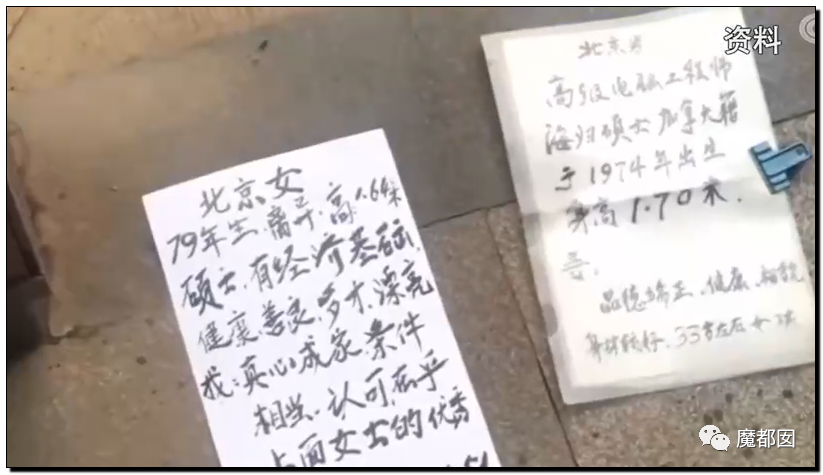 北京女
79年生.离异.高1.64米
硕士.有经济基础.
健康.善良.多才.漂亮
找:真心成家.条件
相当.认可.在乎
上面女士的优秀
北京男
高级电脑工程师
海归硕士加拿大籍
于1974年出生
身高1.70米.
寻.
品德端正.健康.相貌
身材较好.33岁左右女孩
资料
魔都囡